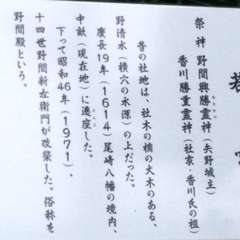 祭神 野間興勝霊神(矢野城主)
香川勝重霊神(社家・香川氏の祖)
昔の社地は、社木の楠の大木のある、
野清水(横穴の水源)の上だった。
慶長19年(1614)尾崎八幡の境内、
中畝(現在地)に遷座した。
下って昭和46年(1971)、
十四世野間新左衛門が改築した。俗称を
野間殿という。